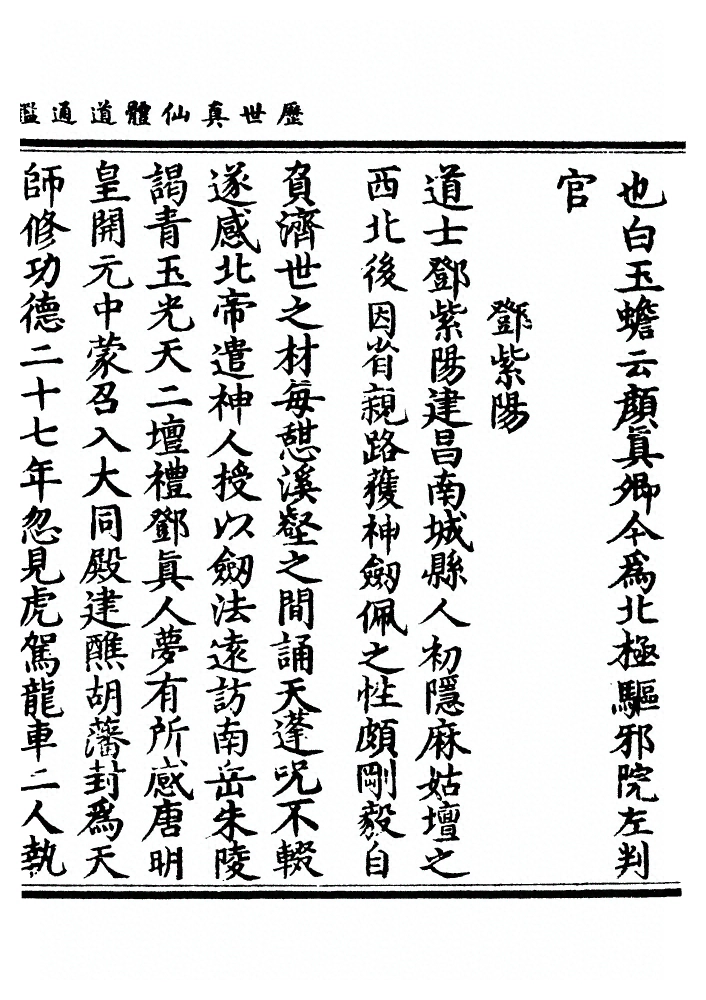 歷世真仙體道通鑑
也白玉蟾云顔眞卿今爲北極驅邪院左判
官
鄧紫陽
道士鄧紫陽建昌南城縣人初隱麻姑壇之
西北後因省親路獲神劒佩之性頗剛毅自
負濟世之材每憇溪壑之間誦天蓬呪不輟
遂感北帝遣神人授以劒法遠訪南岳朱陵
謁青玉光天二壇禮鄧眞人夢有所感唐明
皇開元中蒙召入大同殿建醮胡藩封爲天
師修功德二十七年忽見虎駕龍車二人執